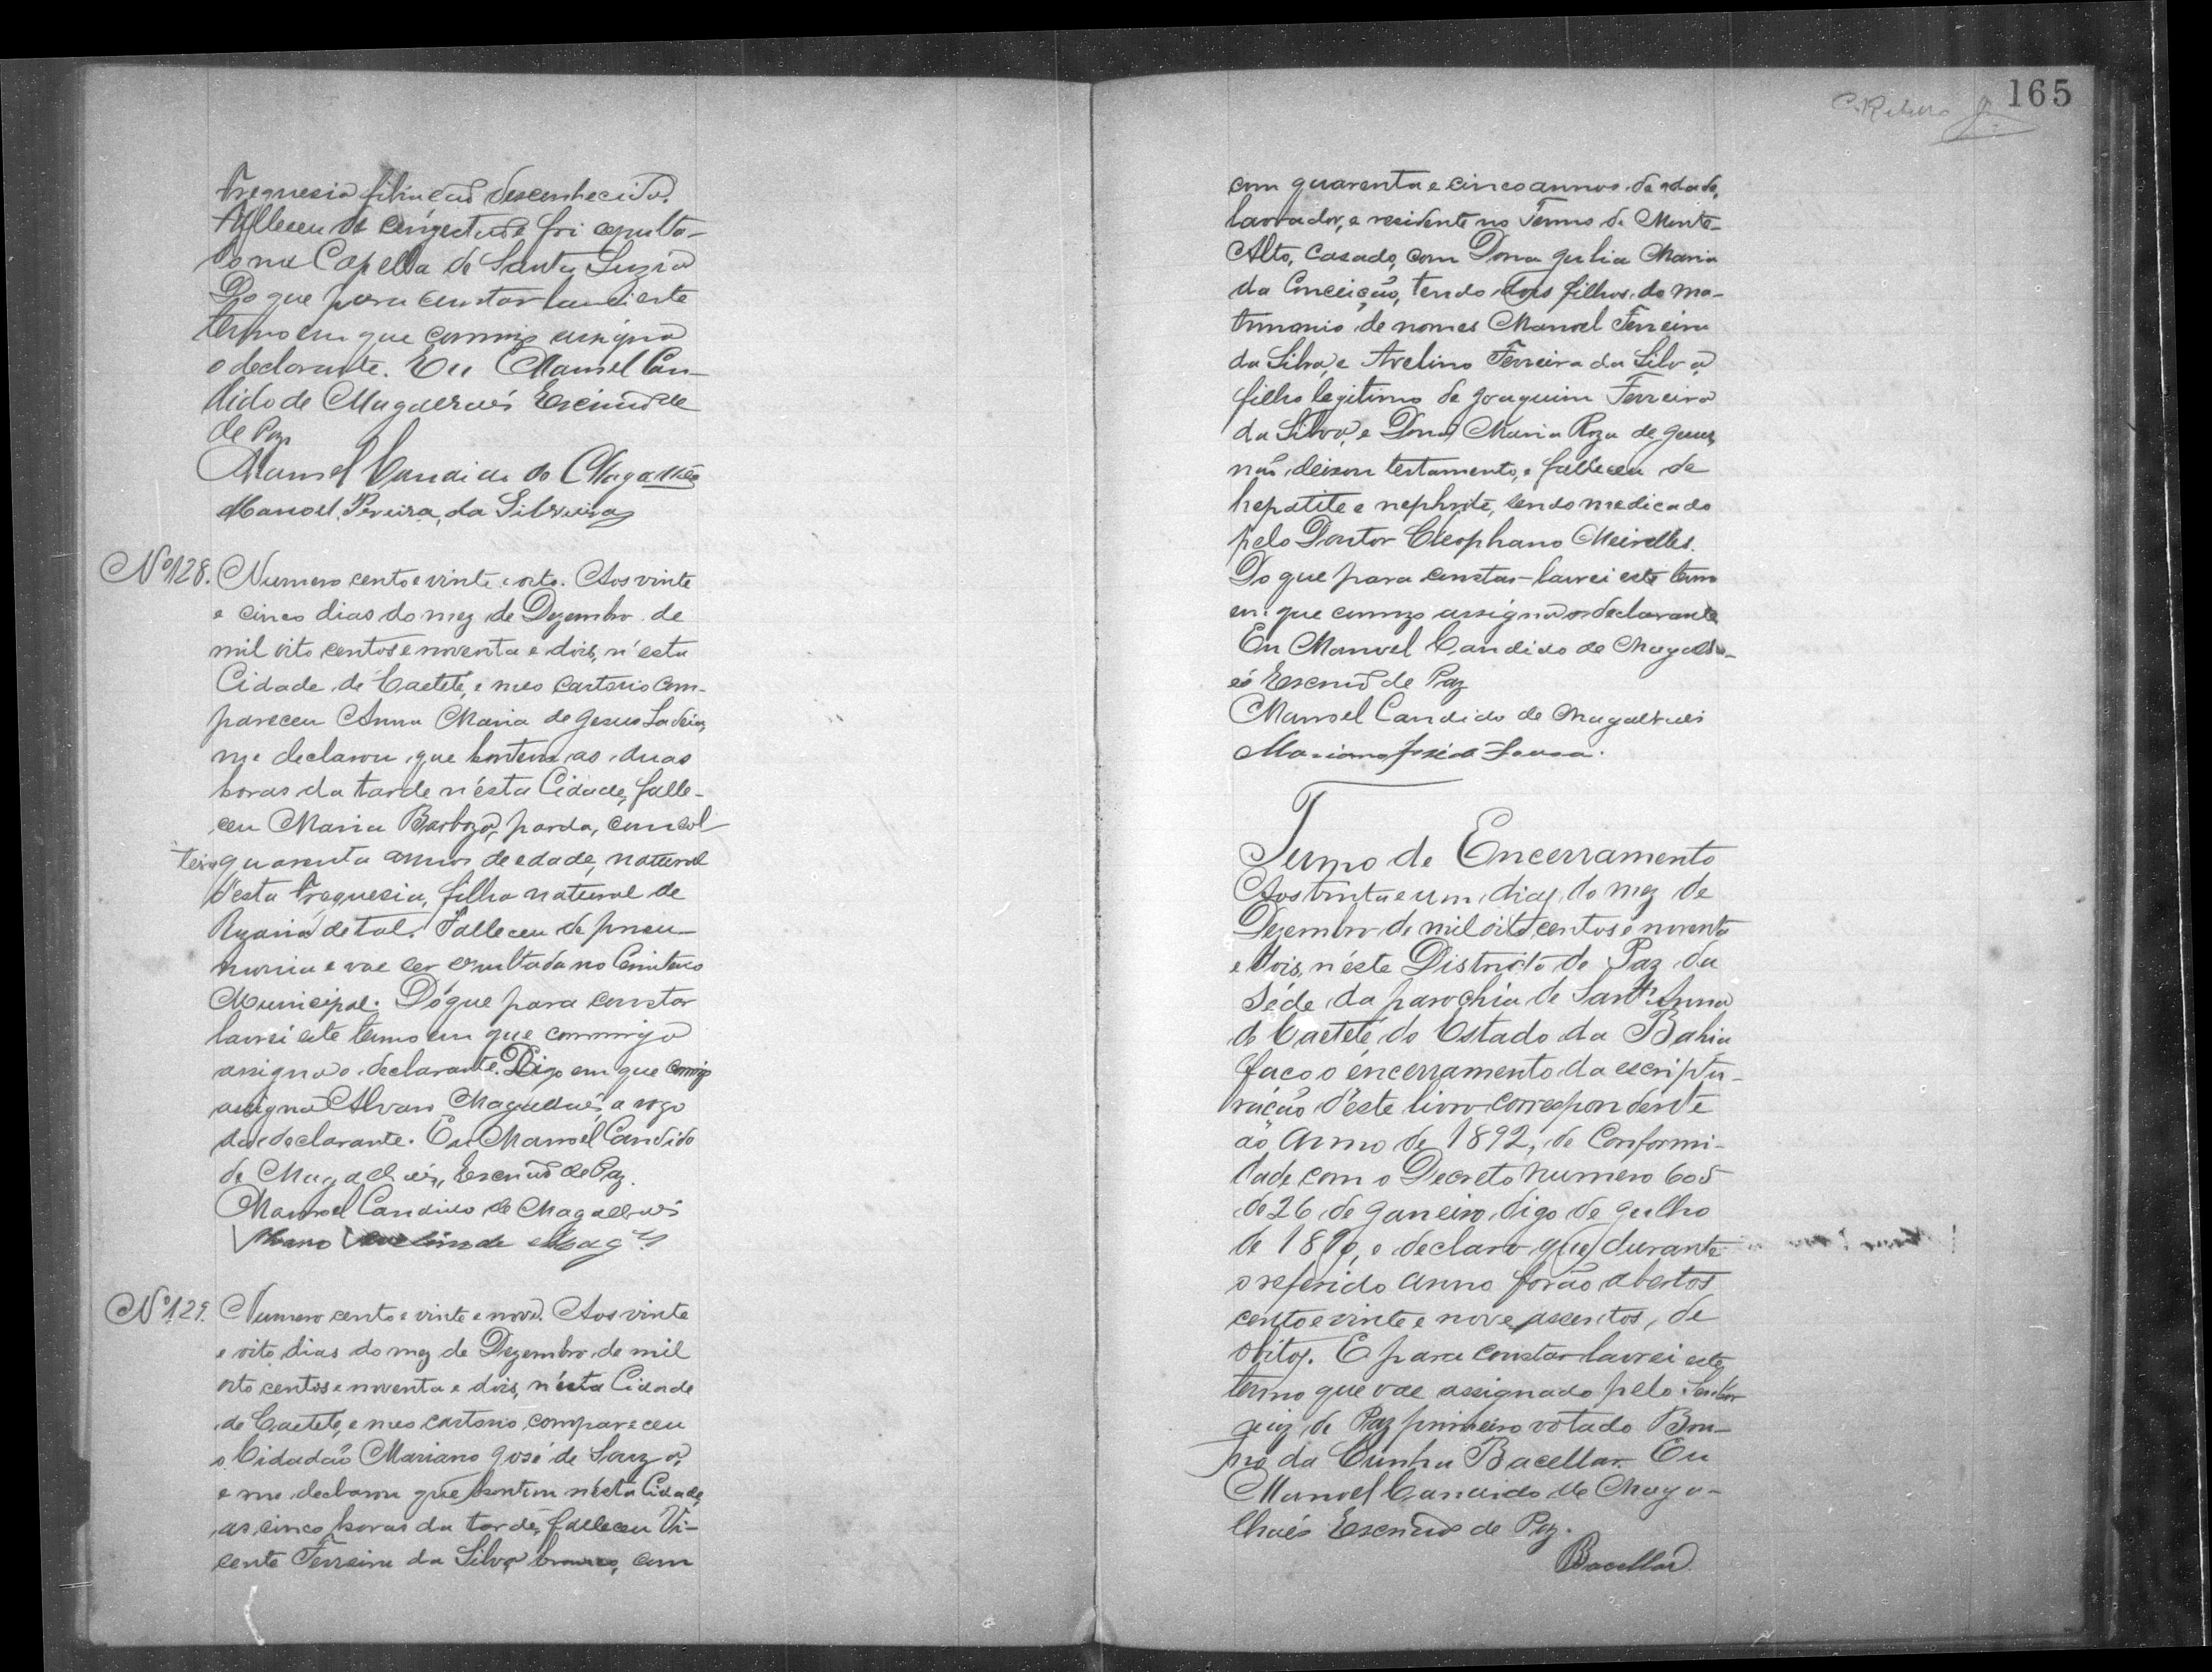 Freguesia filiação desconhecida.
Falleceu de congestão e foi sepulta-
do na Capella de Santa Luzia
Do que para constar lavrei este
termo em que commigo assigna
o declarante. Eu Manoel Can-
dido de Magalhães Escrivão de
de Paz
Manoel Candido de Magalhães
Manoel Pereira da Silveira
Nº 128. Numero cento e vinte e oito. Aos vinte
e cinco dias do mez de Dezembro de
mil oito centos e noventa e dois, n'esta
Cidade de Caetété, e meo cartorio com-
pareceu Anna Maria de Jesus
me declarou que hontem as duas
horas da tarde n'ésta Cidade, falle-
ceu Maria Barboza, parda, com sol-
teira quarenta annos de edade, natural
d'esta Freguesia, filha natural de
de tal. Falleceu de pneu-
monia e vae ser sepultada no Cemiterio
Municipal. Do que para constar
lavrei este termo em que commigo
assigna o declarante. Digo em que comigo
assigna Alvaro Magalhães, a rogo
da declarante. Eu Manoel Candido
de Magalhães, Escrivão de Paz.
Manoel Candido de Magalhães
de Mag.es
Nº 129. Numero cento e vinte e nove. Aos vinte
e oito dias do mez de Dezembro de mil
oito centos e noventa e dois, n'ésta Cidade
de Caetété, e meo cartorio compareceu
o Cidadão Mariano José de Souza,
e me declarou que hontem n'ésta Cidade,
as cinco horas da tarde, falleceu Vi-
cente Ferreira da Silva, branco, com
165
C. Ribeiro
com quarenta e cinco annos de edade,
lavrador, e residente no Termo de Monte-
Alto, casado, com Dona Julia Maria
da Conceição, tendo dois filhos do ma-
trimonio de nomes Manoel Ferreira
da Silva, e Avelino Ferreira da Silva
filho legitimo de Joaquim Ferreira
da Silva, e Dona Maria Roza de Jesus,
não deixou testamento, e falleceu de
hepatite e nephrite, sendo medicado
pelo Doutor Cleophano Meirelles.
Do que para constar lavrei este termo
em que commigo assigna o declarante
Eu Manoel Candido de Magalh-
ães Escrivão de Paz
Manoel Candido de Magalhães
Mariano José de Sousa.
Termo de Encerramento
Aos trinta e um dias do mez de
Dezembro de mil oito centos e noventa
e dois, n'éste Districto de Paz da
séde da parochia de Sant'Anna
de Caetété do Estado da Bahia
faço o encerramento da escriptu-
ração d'éste livro correspondente
ao anno de 1892, de Conformi-
dade com o Decreto numero 605
de 26 de Janeiro, digo de Julho
de 1890, e declaro que durante
o referido anno forão abertos
cento e vinte e nove assentos, de
obitos. E para constar lavrei este
termo que vae assignado pelo Senhor
Juiz de Paz primeiro votado
da Cunha Bacellar. Eu
Manoel Candido de Maga-
lhães Escrivão de Paz.
Bacellar